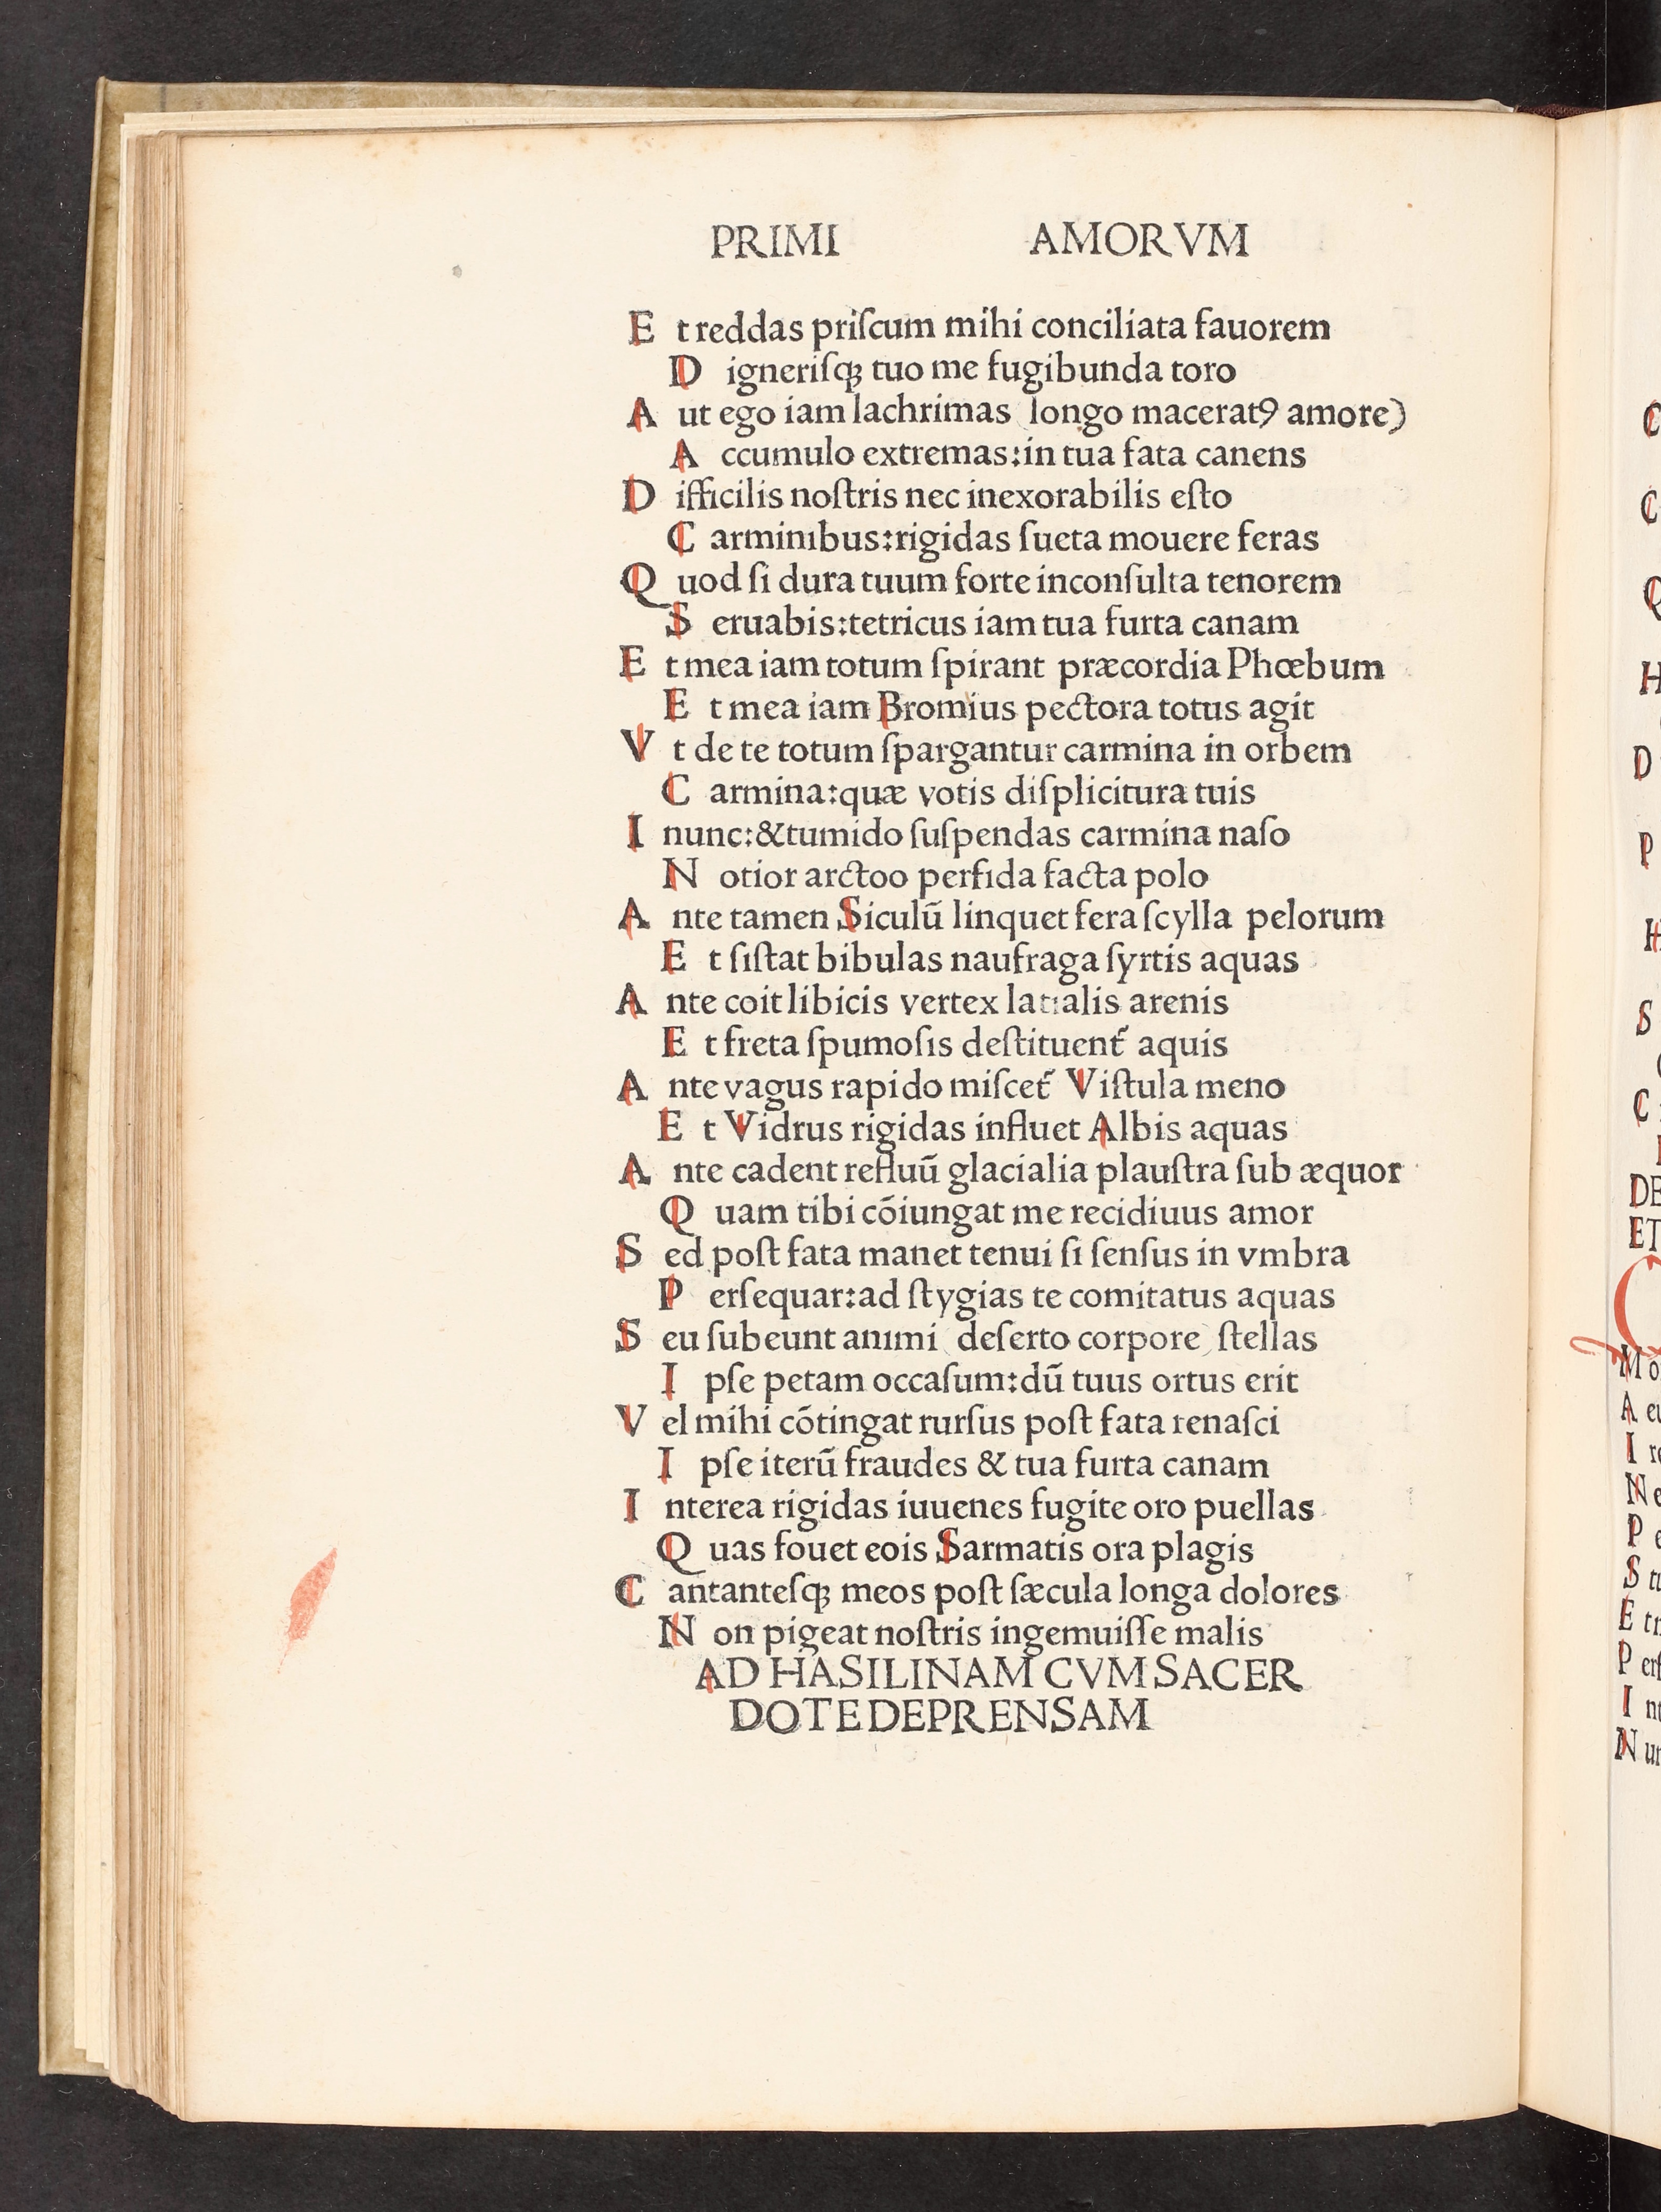 PRIMI AMORVM
E t reddas priſcum mihi conciliata fauorem
D igneriſqꝫ tuo me fugibunda toro
A ut ego iam lachrimas longo maceratꝰ amore)
A ccumulo extremas:in tua fata canens
D ifficilis noſtris nec inexorabilis eſto
C arminibus:rigidas ſueta mouere feras
Q uod ſi dura tuum forte inconſulta tenorem
S eruabis:tetricus iam tua furta canam
E t mea iam totum ſpirant præcordia Phœbum
E t mea iam Bromius pectora totus agit
V t de te totum ſpargantur carmina in orbem
C armina:quæ votis diſplicitura tuis
I nunc:&tumido ſuſpendas carmina naſo
N otior arctoo perfida facta polo
A nte tamen Siculū linquet fera ſcylla pelorum
E t ſiſtat bibulas naufraga ſyrtis aquas
A nte coit libicis vertex latialis arenis
E t freta ſpumoſis deſtituent̄ aquis
A nte vagus rapido miſcet̄ Viſtula meno
E t Vidrus rigidas influet Albis aquas
A nte cadent refluū glacialia plauſtra ſub æquor
Q uam tibi cōiungat me recidiuus amor
S ed poſt fata manet tenui ſi ſenſus in vmbra
P erſequar:ad ſtygias te comitatus aquas
S eu ſubeunt animi deſerto corpore ſtellas
I pſe petam occaſum:dū tuus ortus erit
V el mihi cōtingat rurſus poſt fata renaſci
I pſe iterū fraudes & tua furta canam
I nterea rigidas iuuenes fugite oro puellas
Q uas fouet eois Sarmatis ora plagis
C antanteſqꝫ meos poſt ſæcula longa dolores
N on pigeat noſtris ingemuiſſe malis
AD HASILINAM CVM SACER
DOTE DEPRENSAM